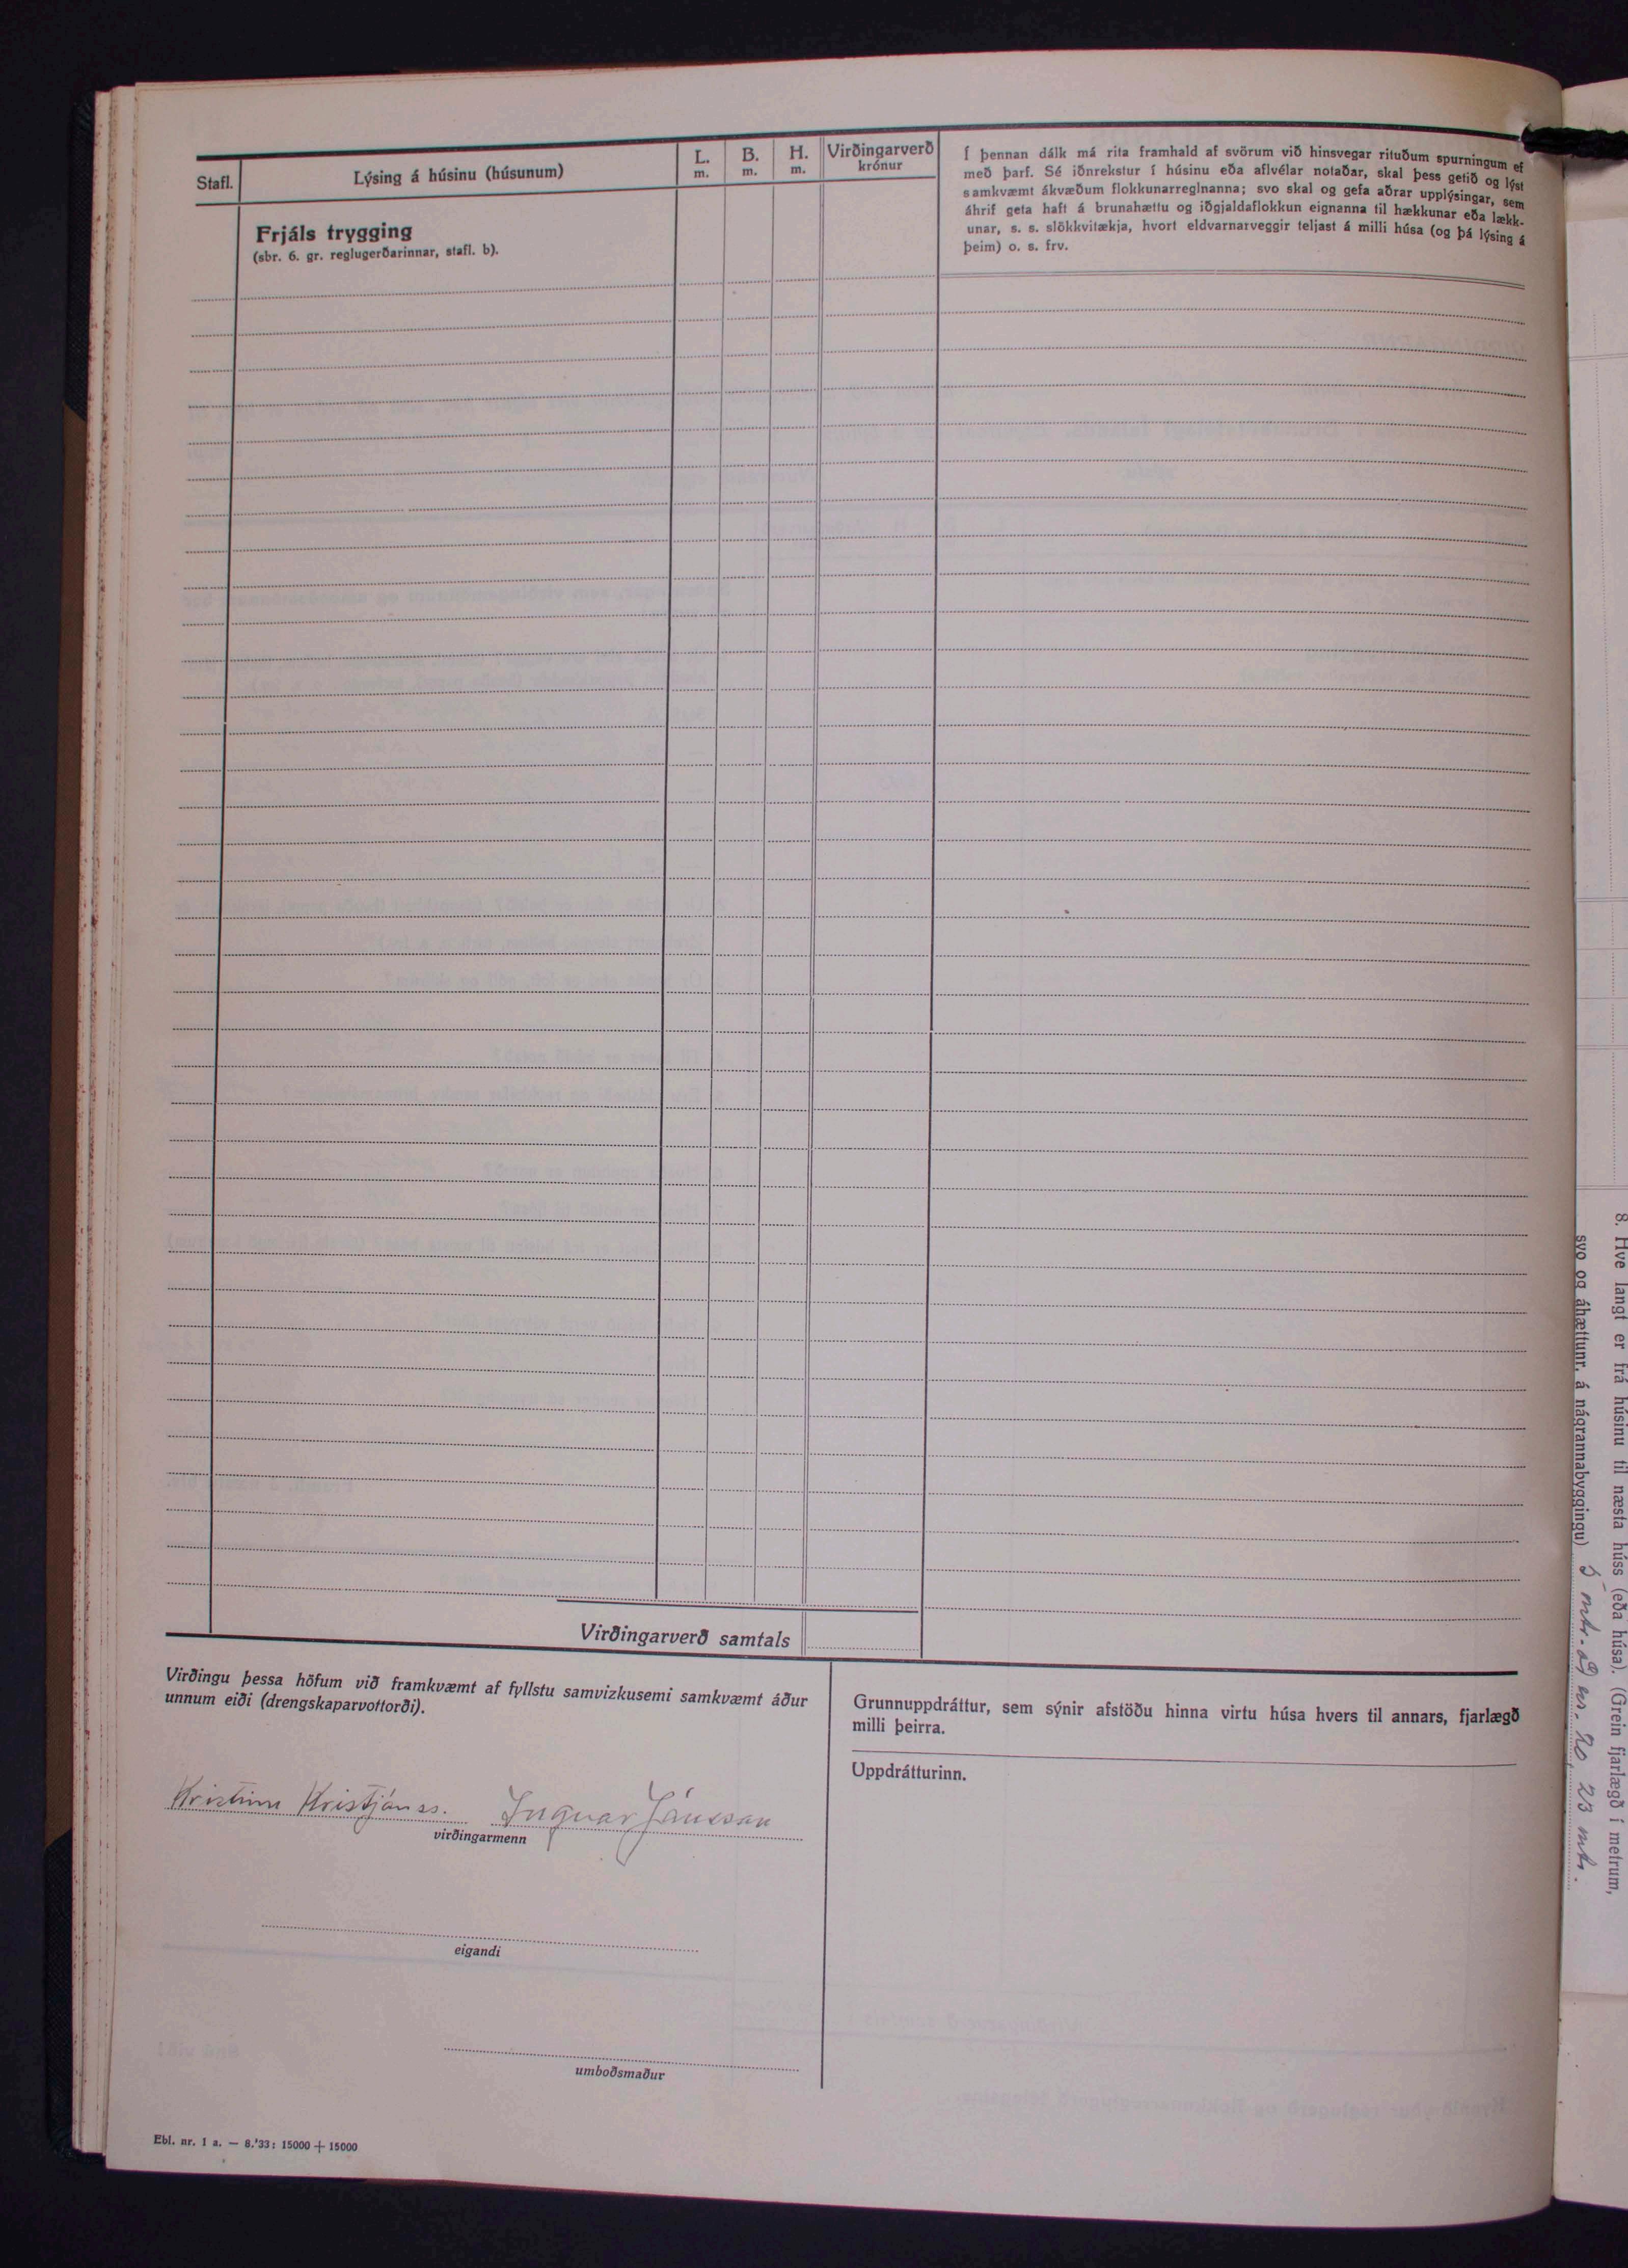 Stafl.
Lýsing á húsinu (húsunum)
L.
m.
B.
m.
H.
m.
Virðingarverð
krónur
Frjáls trygging
(sbr. 6. gr. reglugerðarinnar, stafl. b).
Í þennan dálk má rita framhald af svörum við hinsvegar rituðum spurningum ef
með þarf. Sé iðnrekstur í húsinu eða aflvélar notaðar, skal þess getið og lýst
samkvæmt ákvæðum flokkunarreglnanna; svo skal og gefa aðrar upplýsingar, sem
áhrif geta haft á brunahættu og iðgjaldaflokkun eignanna til hækkunar eða lækk-
unar, s. s. slökkvitækja, hvort eldvarnarveggir teljast á milli húsa (og þá lýsing á
þeim) o. s. frv.
Virðingarverð samtals
Virðingu þessa höfum við framkvæmt af fyllstu samvizkusemi samkvæmt áður
unnum eiði (drengskaparvottorði).
Kristinn Kristjánss. Ingvar Jónsson
virðingarmenn
eigandi
umboðsmaður
Grunnuppdráttur, sem sýnir afstöðu hinna virtu húsa hvers til annars, fjarlægð
milli þeirra.
Uppdrátturinn.
Ebl. nr. 1 a. — 8.'33: 15000 + 15000
8. Hve langt er frá húsinu til næsta húss (eða húsa). (Grein fjarlægð í metrum,
svo og áhættunr. á nágrannabyggingu)
20 23 mtr.